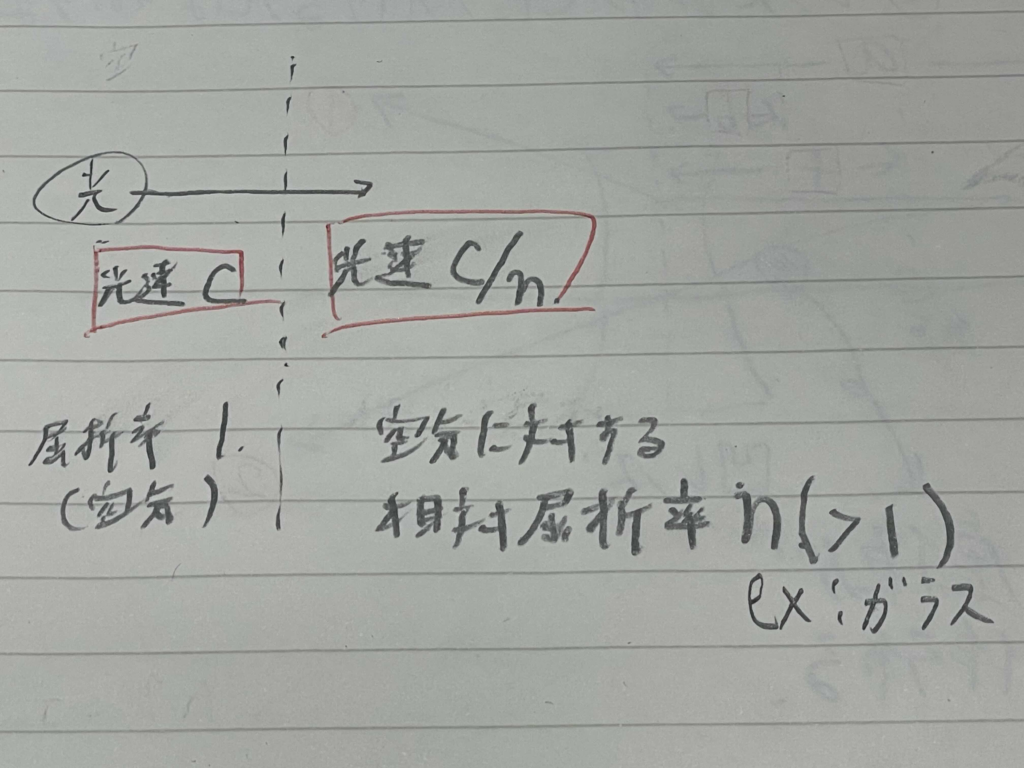 光
光速 C
光速 C/n
屈折率 1.
(空気)
空気に対する
相対屈折率 n(>1)
ex:ガラス